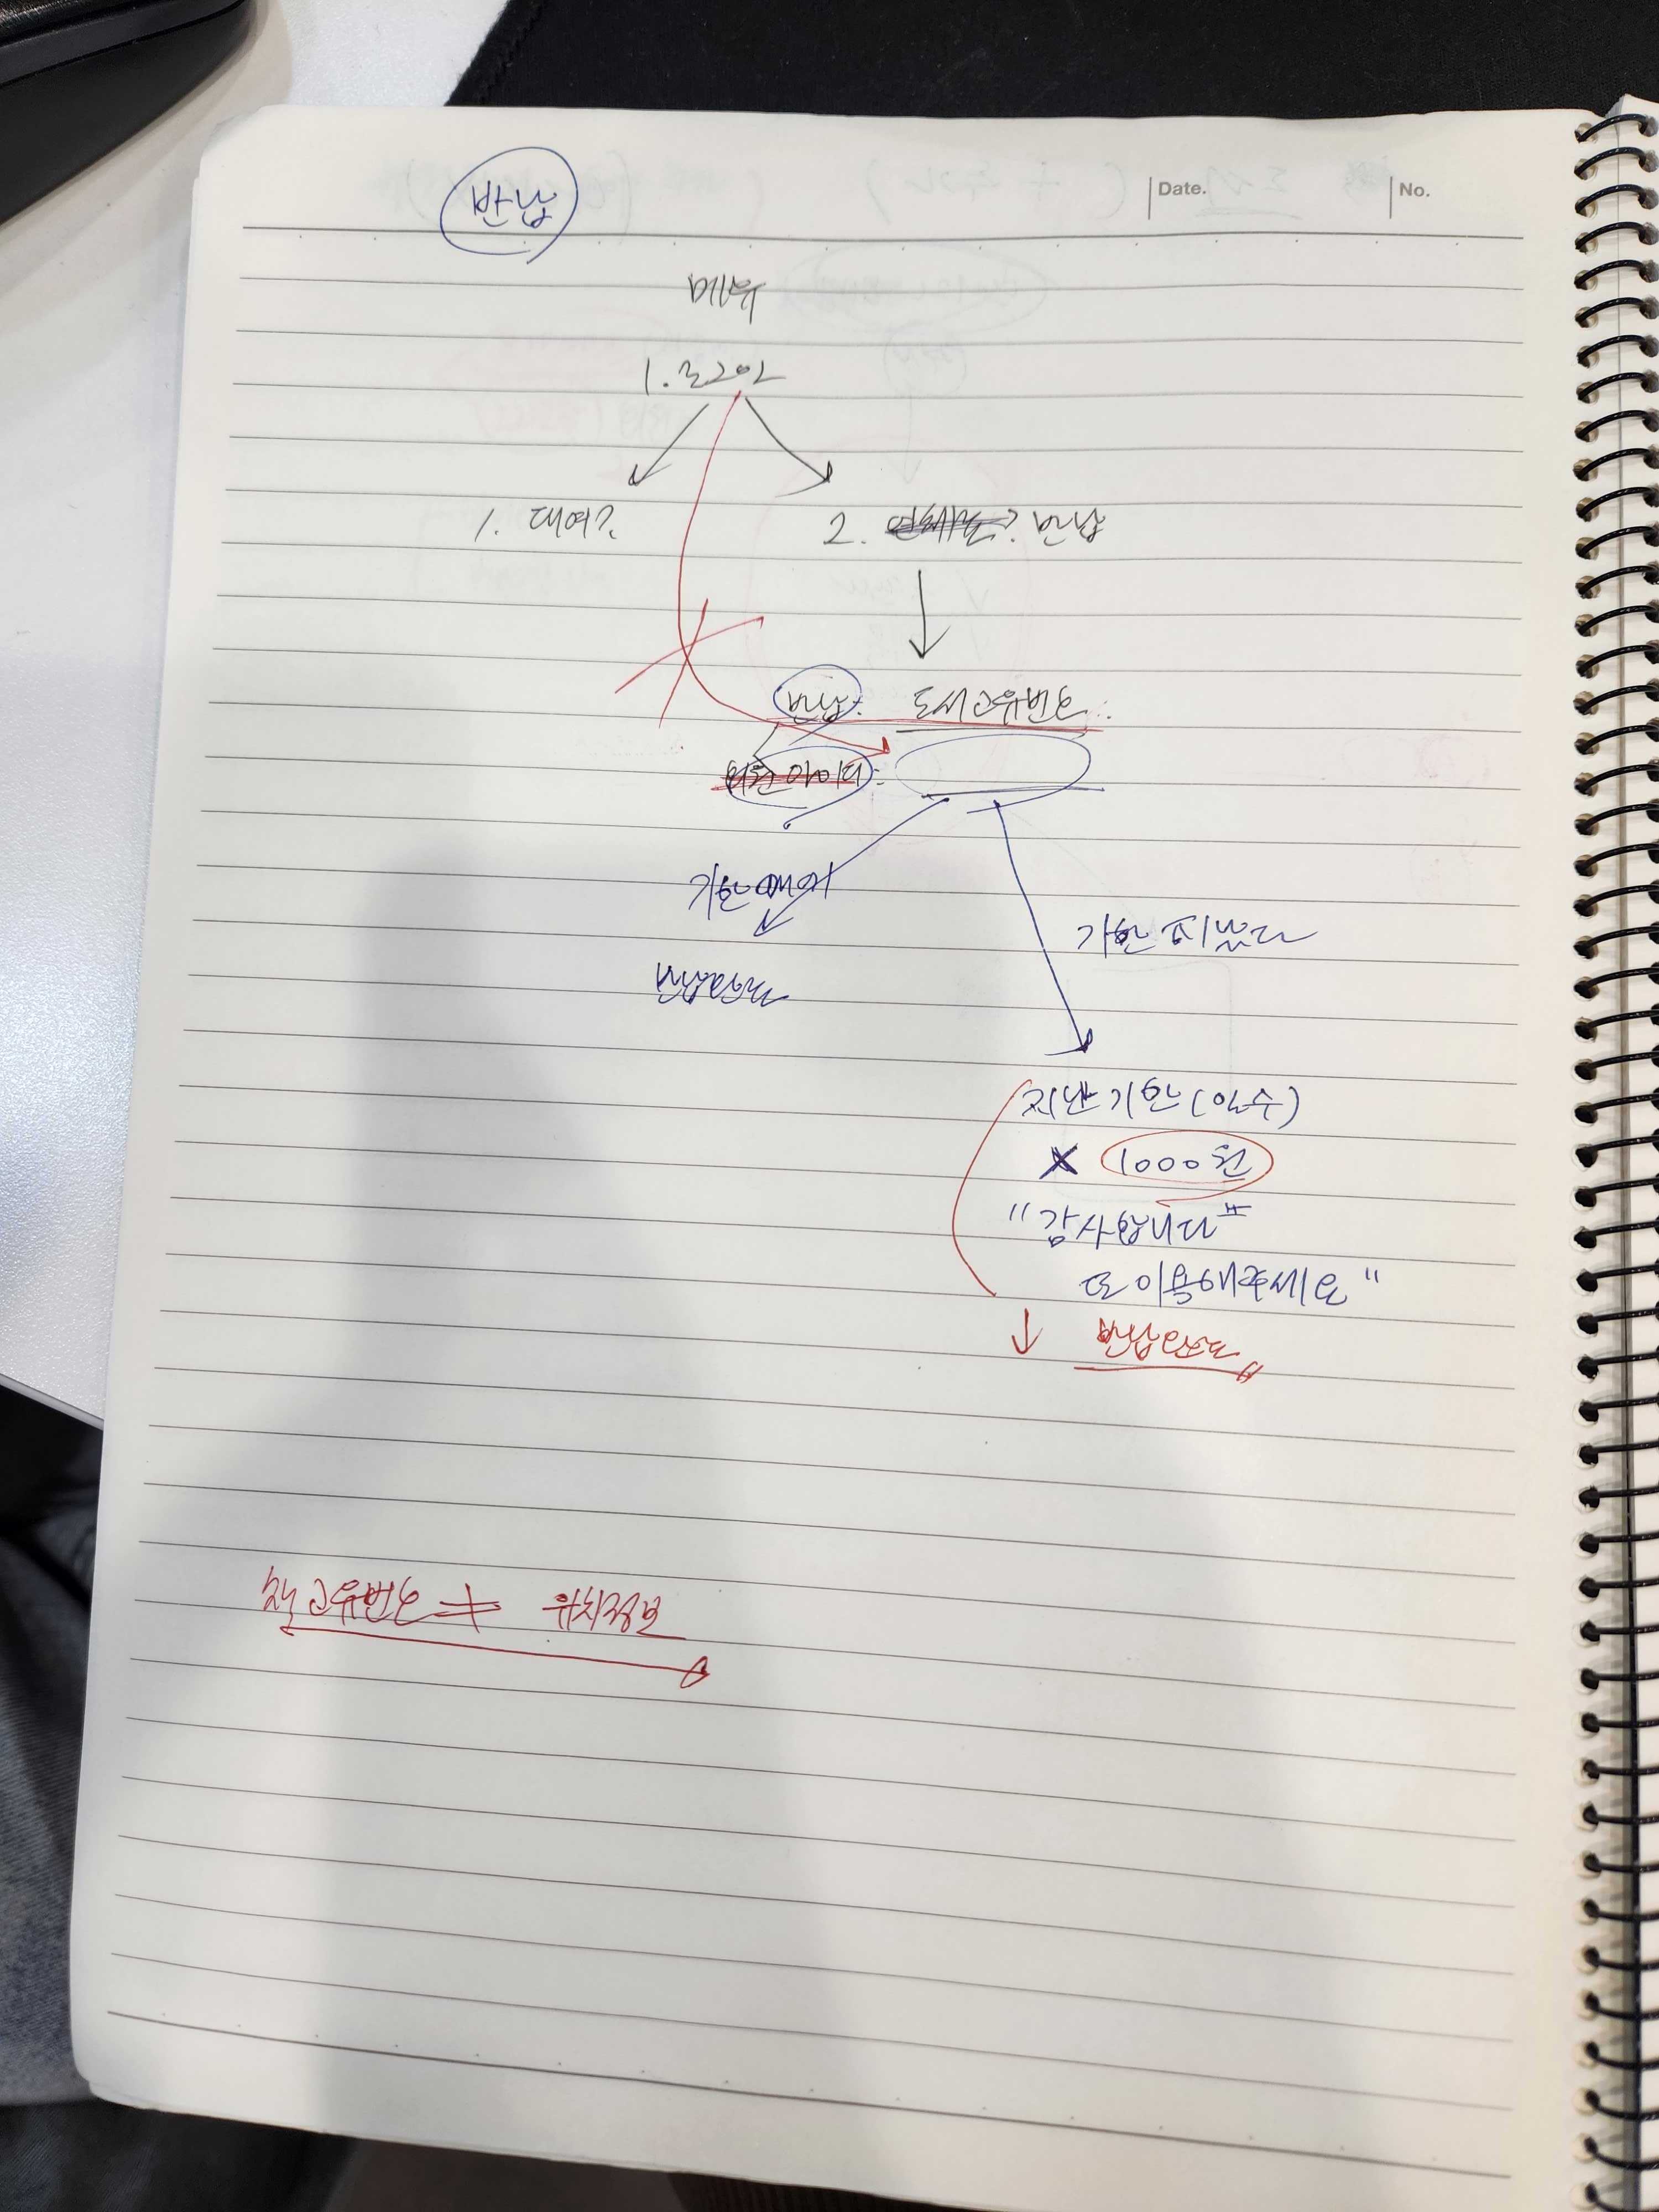 Date. No.
반납
메뉴
1. 로그인
1. 대여?
2. 연체료? 반납
반납: 도서고유번호:
회원아이디:
기한 내에
기한 지났다
반납완료
지난 기한(일수)
X 1000원
"감사합니다
또 이용해주세요"
↓ 반납완료"
책 고유번호 ≠ 위치정보